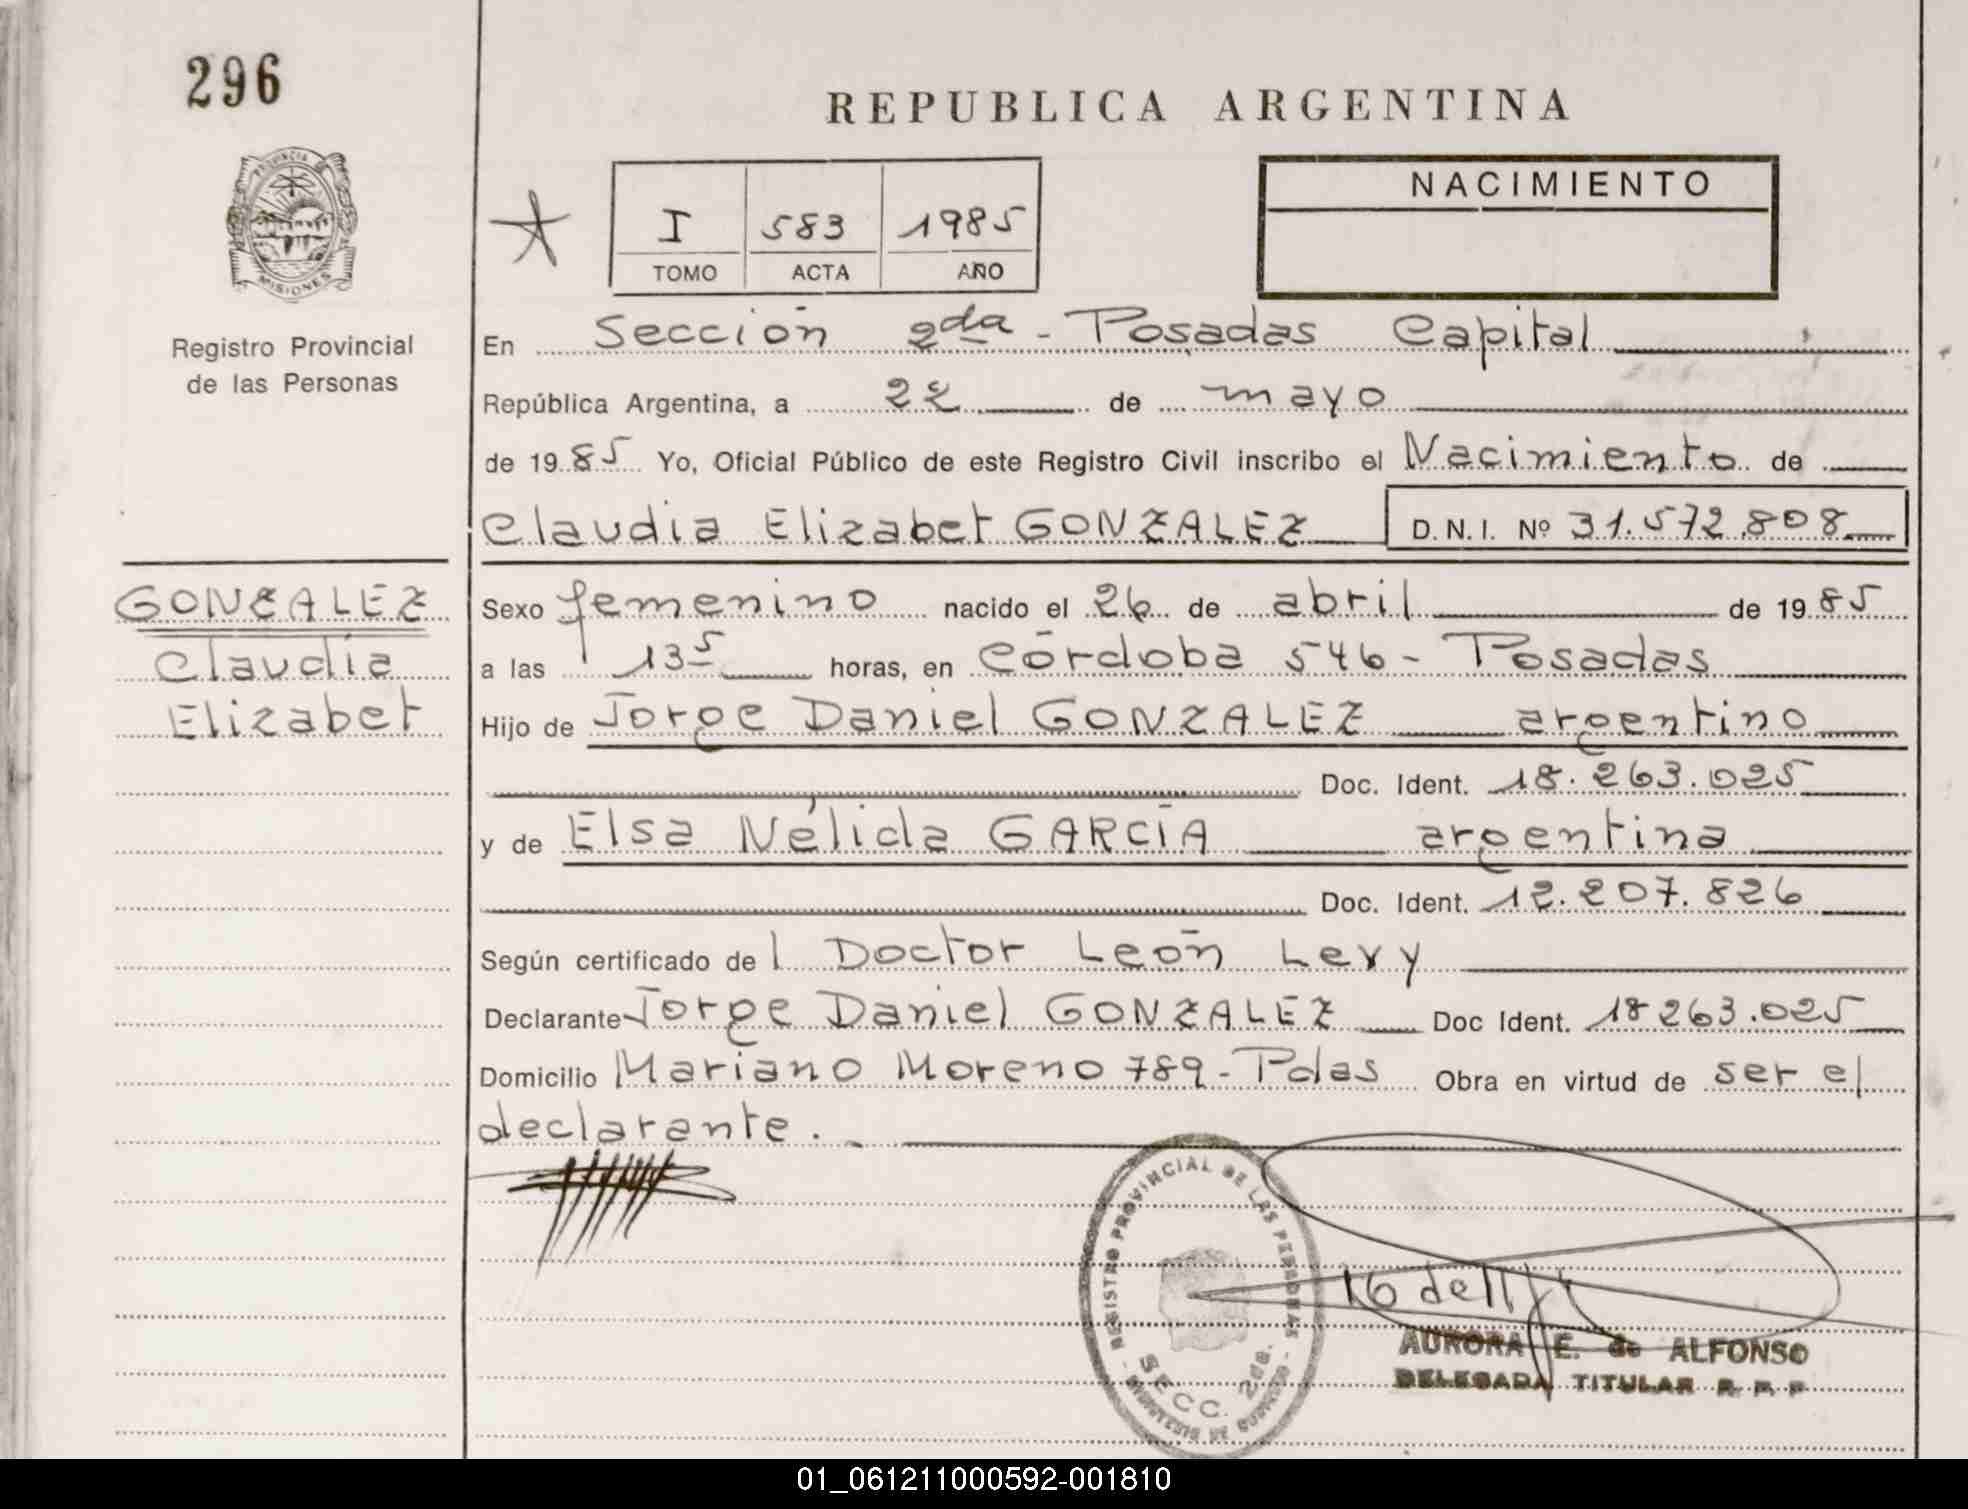 296
REPUBLICA ARGENTINA
PROVINCIA DE
MISIONES
Registro Provincial
de las Personas
I 583 1985
TOMO ACTA AÑO
NACIMIENTO
En Sección 2da - Posadas Capital
República Argentina, a 22 de mayo
de 1985 Yo, Oficial Público de este Registro Civil inscribo el Nacimiento de
Claudia Elizabet GONZALEZ D.N.I. Nº 31.572.808
GONZALEZ
Claudia
Elizabet
Sexo femenino nacido el 26 de abril de 1985
a las 13 5 horas, en Córdoba 546 - Posadas
Hijo de Jorge Daniel GONZALEZ argentino
Doc. Ident. 18.263.025
y de Elsa Nélida GARCÍA argentina
Doc. Ident. 12.207.826
Según certificado del Doctor León Levy
Declarante Jorge Daniel GONZALEZ Doc Ident. 18263.025
Domicilio Mariano Moreno 789 - Pdas Obra en virtud de ser el
declarante.
REGISTRO PROVINCIAL DE LAS PERSONAS
SECC. 2da.
AURORA E. de ALFONSO
DELEGADA TITULAR R. P. P
01_061211000592-001810